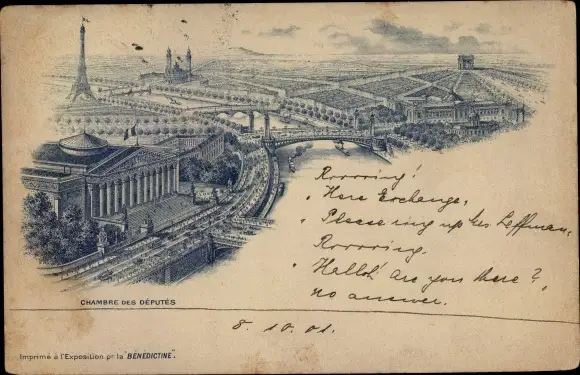 Rrrrring!
"Here Exchange.
"Please ring up
Rrrrring.
"Halloh! Are you there?
no answer.
CHAMBRE DES DÉPUTÉS
8. 10. 01.
Imprimé à l'Exposition pr la "BÉNÉDICTINE".